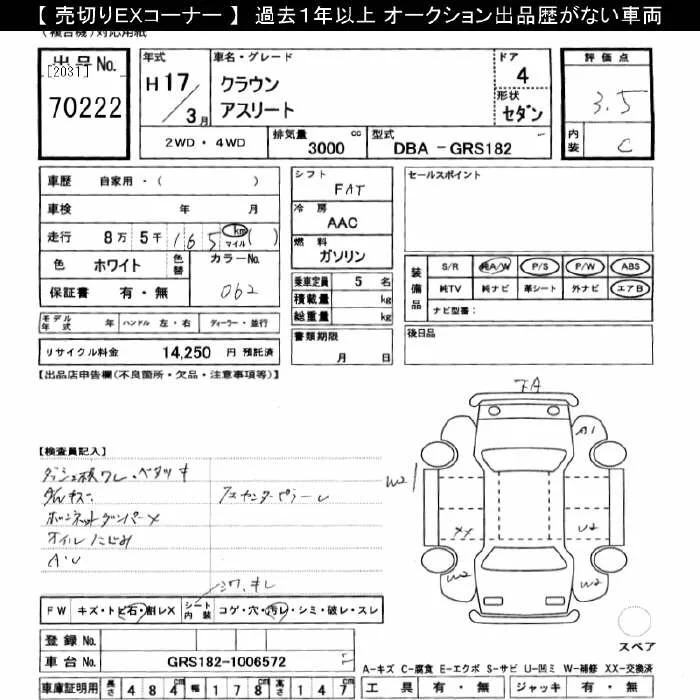 【 売切りEXコーナー 】 過去1年以上 オークション出品歴がない車両
(複合機)対応用紙
出品No. [2031] 70222
年式 H17/3月
車名・グレード クラウン アスリート
ドア 4
形状 セダン
評価点 3.5
内装 C
2WD・4WD
排気量 3000 cc
型式 DBA-GRS182
車歴 自家用・( )
車検 年 月
走行 8万 5千 165 km マイル ( )
色 ホワイト 色替 カラーNo. 062
保証書 有・無
シフト FAT
冷房 AAC
燃料 ガソリン
乗車定員 5 名
積載量 kg
総重量 kg
書類期限 月 日
セールスポイント
装備品 S/R 純A/W P/S P/W ABS
純TV 純ナビ 革シート 外ナビ エアB
ナビ型番:
後日品
モデル年式 年 ハンドル 左・右 ディーラー・並行
リサイクル料金 14,250 円 預託済
【出品店申告欄(不良箇所・欠品・注意事項等)】
【検査員記入】
ボンネットダンパーX
オイルにじみ
A・U
FA
A1
W2
W2
XX
U2
W2
W2
FW キズ・トビ石・割レX シート内装 コゲ・穴・汚レ・シミ・破レ・スレ
スペア
登録No.
車台No. GRS182-1006572
A-キズ C-腐食 E-エクボ S-サビ U-凹ミ W-補修 XX-交換済
車庫証明用 長さ 484cm 幅 178cm 高さ 147cm
工具 有・無 ジャッキ 有・無